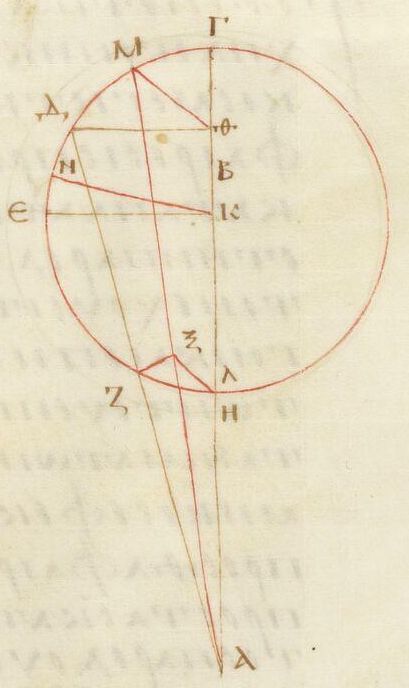 Γ
Μ
Δ
Θ
Ν
Β
Ε
Κ
Ξ
Ζ
Λ
Η
Α